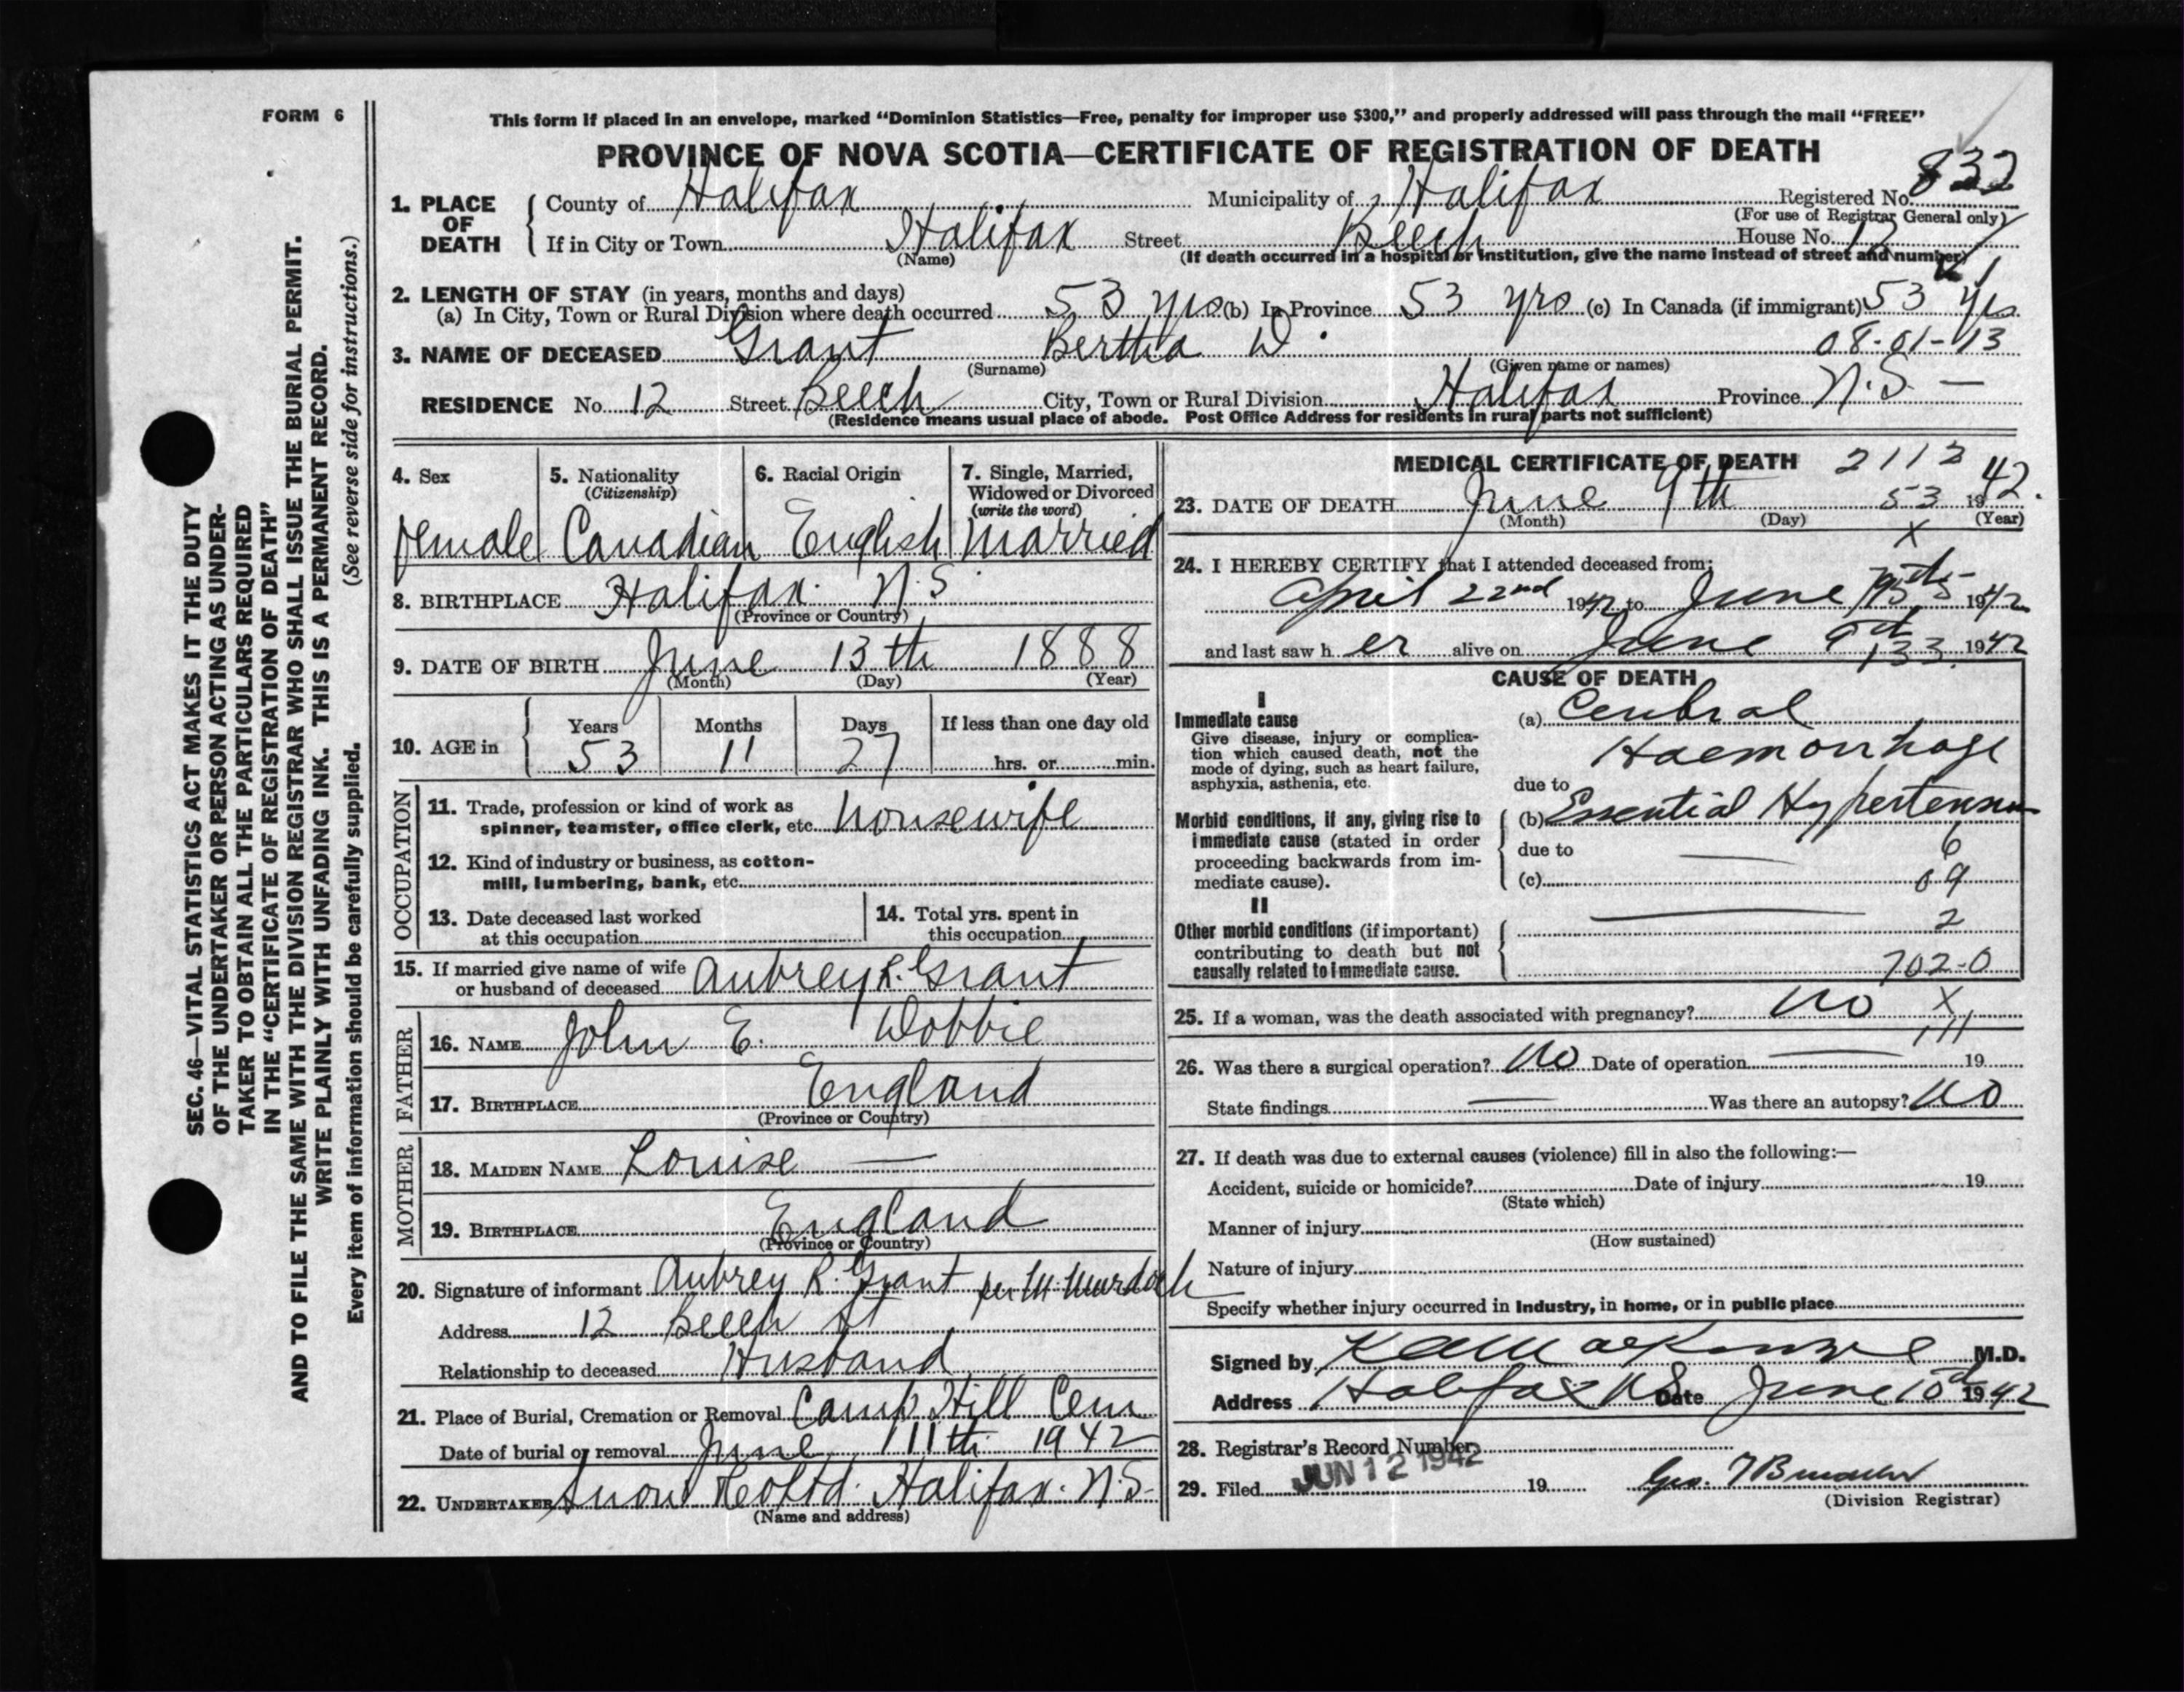 FORM 6
This form if placed in an envelope, marked “Dominion Statistics—Free, penalty for improper use $300,” and properly addressed will pass through the mail “FREE”
PROVINCE OF NOVA SCOTIA—CERTIFICATE OF REGISTRATION OF DEATH
SEC. 46—VITAL STATISTICS ACT MAKES IT THE DUTY
OF THE UNDERTAKER OR PERSON ACTING AS UNDER-
TAKER TO OBTAIN ALL THE PARTICULARS REQUIRED
IN THE “CERTIFICATE OF REGISTRATION OF DEATH”
AND TO FILE THE SAME WITH THE DIVISION REGISTRAR WHO SHALL ISSUE THE BURIAL PERMIT.
WRITE PLAINLY WITH UNFADING INK. THIS IS A PERMANENT RECORD.
Every item of information should be carefully supplied. (See reverse side for instructions.)
1. PLACE OF DEATH
County of Halifax Municipality of Halifax Registered No. 832
(For use of Registrar General only)
If in City or Town Halifax Street Beech House No. 12
(Name) (If death occurred in a hospital or institution, give the name instead of street and number)
2. LENGTH OF STAY (in years, months and days)
(a) In City, Town or Rural Division where death occurred 53 yrs (b) In Province 53 yrs (c) In Canada (if immigrant) 53 yrs
3. NAME OF DECEASED Grant Bertha D. 08-01-13
(Surname) (Given name or names)
RESIDENCE No. 12 Street Beech City, Town or Rural Division Halifax Province N.S.
(Residence means usual place of abode. Post Office Address for residents in rural parts not sufficient)
4. Sex 5. Nationality (Citizenship) 6. Racial Origin 7. Single, Married, Widowed or Divorced (write the word)
female Canadian English Married
8. BIRTHPLACE Halifax. N.S.
(Province or Country)
9. DATE OF BIRTH June 13th 1888
(Month) (Day) (Year)
10. AGE in Years Months Days If less than one day old
53 11 27 hrs. or min.
OCCUPATION
11. Trade, profession or kind of work as
spinner, teamster, office clerk, etc. housewife
12. Kind of industry or business, as cotton-
mill, lumbering, bank, etc.
13. Date deceased last worked
at this occupation
14. Total yrs. spent in
this occupation
15. If married give name of wife
or husband of deceased Aubrey R. Grant
FATHER
16. NAME John E. Dobbie
17. BIRTHPLACE England
(Province or Country)
MOTHER
18. MAIDEN NAME Louise —
19. BIRTHPLACE England
(Province or Country)
20. Signature of informant Aubrey R. Grant per M. Murdoch
Address 12 Beech St
Relationship to deceased Husband
21. Place of Burial, Cremation or Removal Camp Hill Cem
Date of burial or removal June 11th 1942
22. UNDERTAKER Snow & Co Ltd. Halifax. N.S.
(Name and address)
MEDICAL CERTIFICATE OF DEATH 2112
23. DATE OF DEATH June 9th 1942.
53
(Month) (Day) (Year)
X
24. I HEREBY CERTIFY that I attended deceased from:
April 22nd 1942 to June 1942
and last saw her alive on June 9th 1942
133
CAUSE OF DEATH
I
Immediate cause
Give disease, injury or complica-
tion which caused death, not the
mode of dying, such as heart failure,
asphyxia, asthenia, etc.
(a) Cerebral
Haemorrhage
due to
Morbid conditions, if any, giving rise to
immediate cause (stated in order
proceeding backwards from im-
mediate cause).
(b) Essential Hypertension
due to — 6
(c) 09
II
Other morbid conditions (if important)
contributing to death but not
causally related to immediate cause.
— 2
702-0
25. If a woman, was the death associated with pregnancy? no X
111
26. Was there a surgical operation? No Date of operation — 19
State findings — Was there an autopsy? No
27. If death was due to external causes (violence) fill in also the following:—
Accident, suicide or homicide? Date of injury 19
(State which)
Manner of injury
(How sustained)
Nature of injury
Specify whether injury occurred in industry, in home, or in public place
Signed by MacKenzie M.D.
Address Halifax NS Date June 10th 1942
28. Registrar's Record Number
29. Filed JUN 12 1942 19 Geo.
(Division Registrar)